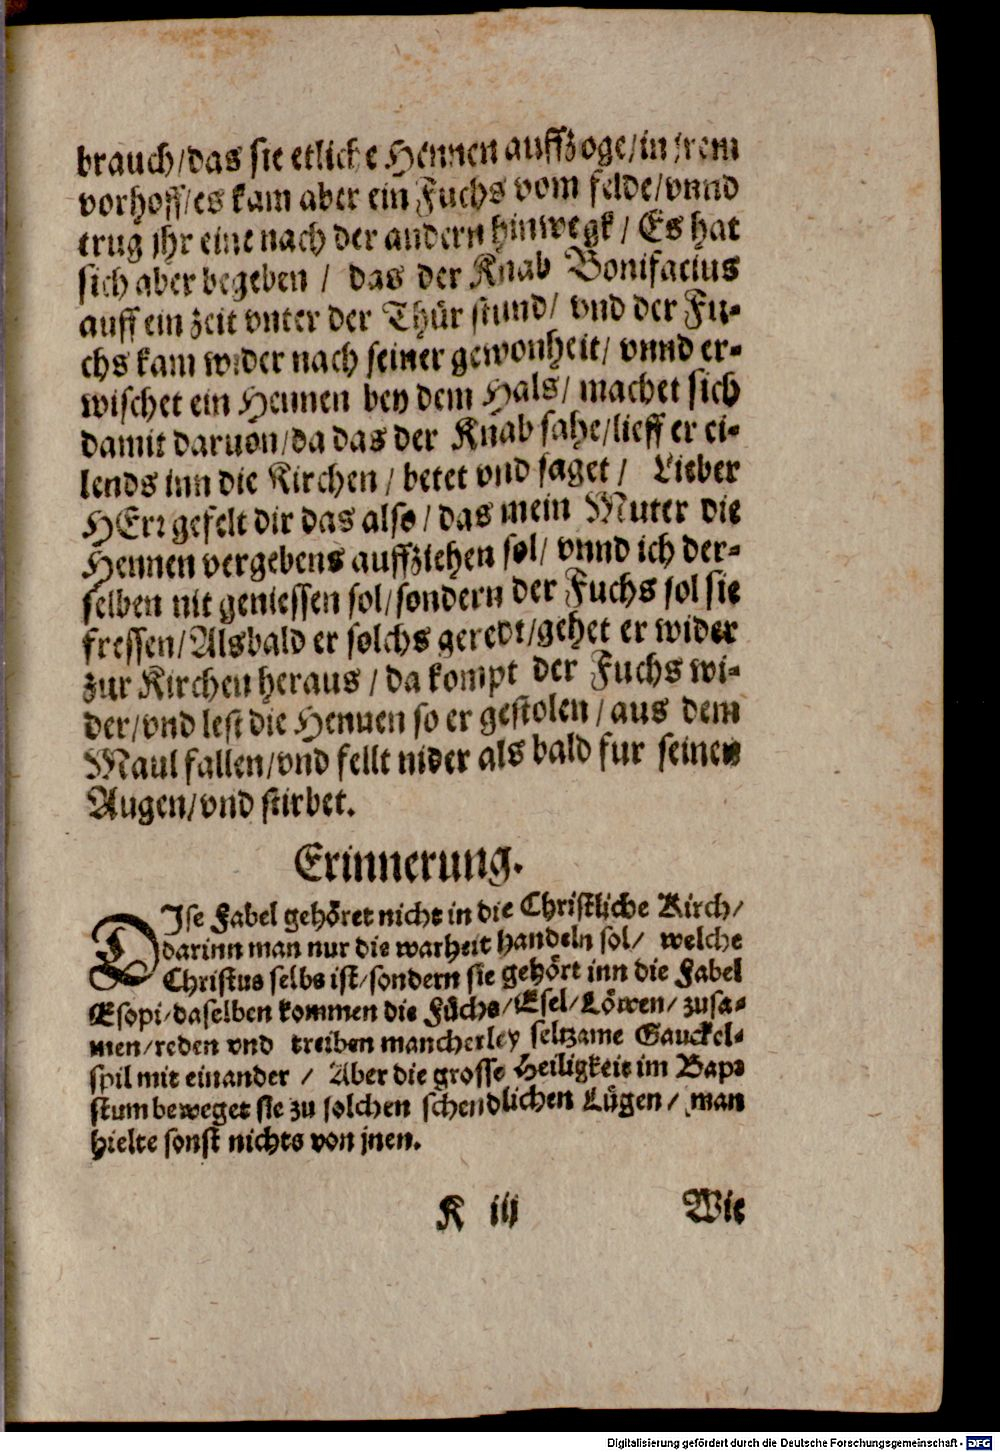 brauch/das sie etliche Hennen auffzoge/in jrem
vorhoff/es kam aber ein Fuchs vom felde/vnnd
trug jhr eine nach der andern hinwegk / Es hat
sich aber begeben / das der Knab Bonifacius
auff ein zeit vnter der Thür stund/ vnd der Fu-
chs kam wider nach seiner gewonheit/ vnnd er-
wischet ein Hennen bey dem Hals/ machet sich
damit daruon/da das der Knab sahe/lieff er ei-
lends inn die Kirchen / betet vnd saget / Lieber
HErr gefelt dir das also / das mein Muter die
Hennen vergebens auffziehen sol/ vnnd ich der-
selben nit geniessen sol/sondern der Fuchs sol sie
fressen/Alsbald er solchs geredt/gehet er wider
zur Kirchen heraus / da kompt der Fuchs wi-
der/vnd lest die Hennen so er gestolen / aus dem
Maul fallen/vnd fellt nider als bald fur seinen
Augen/vnd stirbet.
Erinnerung.
DIse Fabel gehöret nicht in die Christliche Kirch/
darinn man nur die warheit handeln sol/ welche
Christus selbs ist/sondern sie gehört inn die Fabel
Esopi/daselben kommen die Füchs/Esel/Löwen/ zusa-
men/reden vnd treiben mancherley seltzame Gauckel-
spil mit einander / Aber die grosse Heiligkeit im Bap-
stum beweget sie zu solchen schendlichen Lügen / man
hielte sonst nichts von jnen.
K iij Wie
Digitalisierung gefördert durch die Deutsche Forschungsgemeinschaft - DFG